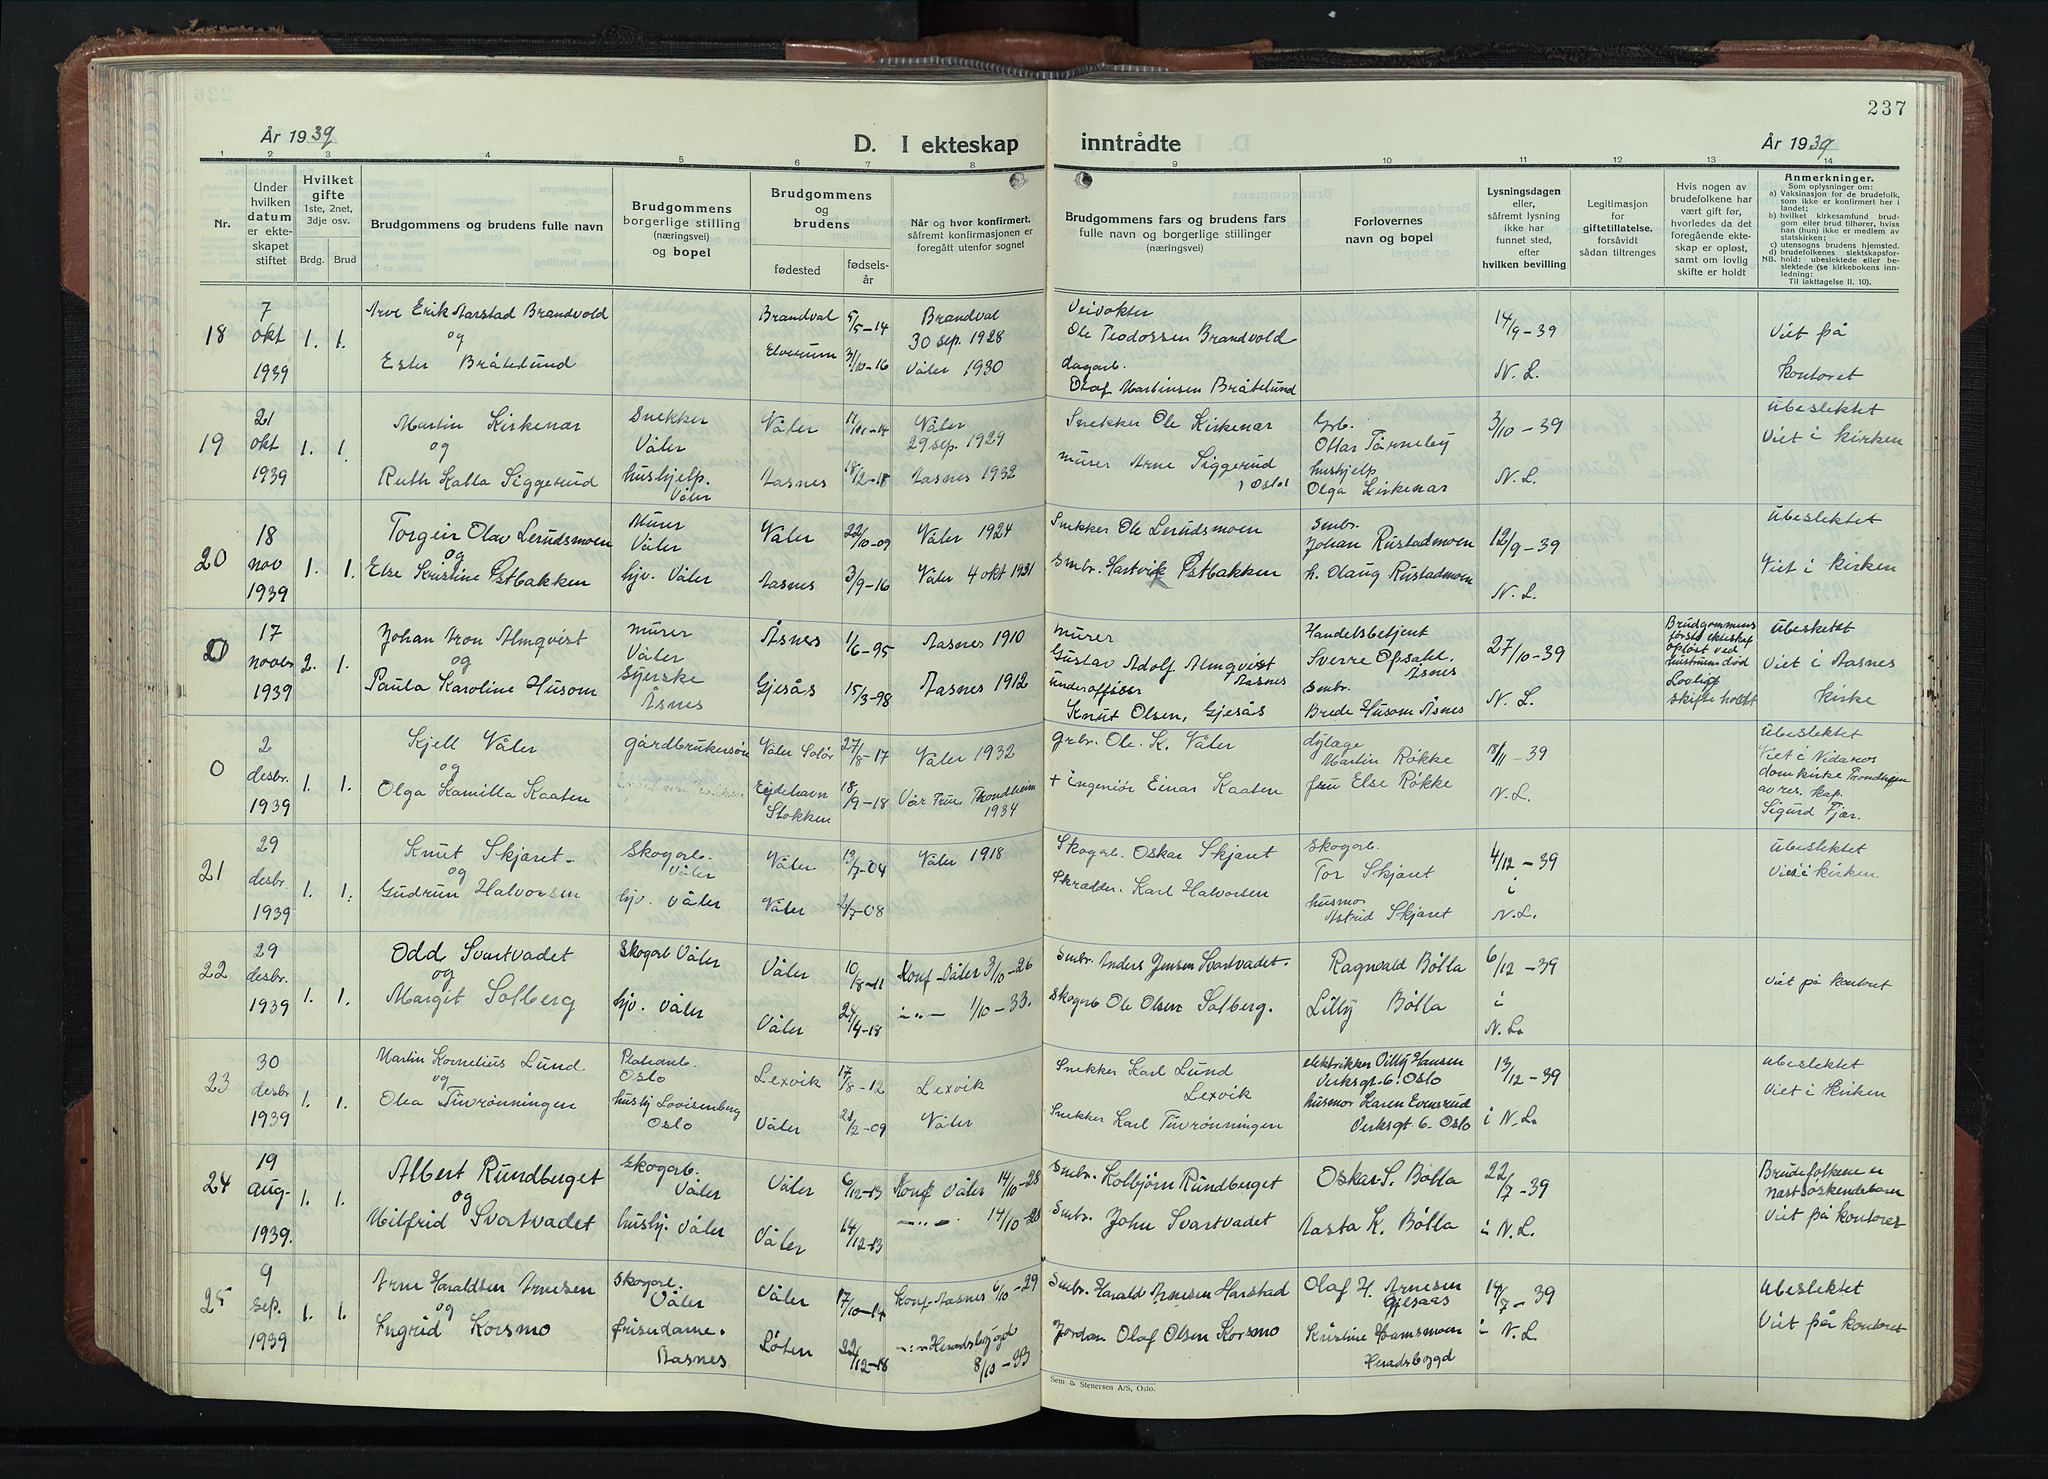 237
År 1939
D. I ekteskap inntrådte
År 1939
1 2 3 4 5 6 7 8 9 10 11 12 13 14
Nr.
Under hvilken datum er ekte-skapet stiftet
Hvilket gifte
1ste, 2net, 3dje osv.
Brdg. Brud
Brudgommens og brudens fulle navn
Brudgommens borgerlige stilling (næringsvei) og bopel
Brudgommens og brudens
fødested
fødsels-år
Når og hvor konfirmert, såfremt konfirmasjonen er foregått utenfor sognet
Brudgommens fars og brudens fars fulle navn og borgerlige stillinger (næringsvei)
Forlovernes navn og bopel
Lysningsdagen eller, såfremt lysning ikke har funnet sted, efter hvilken bevilling
Legitimasjon for giftetillatelse, forsåvidt sådan tiltrenges
Hvis nogen av brudefolkene har vært gift før, hvorledes da det foregående ekte-skap er opløst, samt om lovlig skifte er holdt
Anmerkninger.
Som oplysninger om:
a) Vaksinasjon for de brudefolk, som ikke er konfirmert her i landet;
b) hvilket kirkesamfund brud-gom eller brud tilhører, hviss han (hun) ikke er medlem av statskirken;
c) utensogns brudens hjemsted.
d) brudefolkenes slektskapsfor-hold: ubeslektede eller be-slektede (se kirkebokens inn-ledning:
Til iakttagelse II. 10).
18 7 okt 1939 1. 1.
Arve Erik Aarstad Brandvold
og
Ester Bråtelund
Brandval 5/5-14 Brandval 30 sep. 1928
Elverum 31/10-16 Våler 1930
Veivokter
Ole Teodossen Brandvold
dagarb.
Olaf Martinsen Bråtelund
14/9-39
N. L.
Viet på
kontoret
19 21 okt 1939 1. 1.
Martin Kirkenær
og
Ruth Kalla Siggerud
Snekker
Våler
hushjelp.
Våler
Våler Våler 29 sep. 1929
Aasnes 18/12-18 Aasnes 1932
Snekker Ole Kirkenær
murer Arne Siggerud
i Oslo
Grb.
Ottar Tårneby
hushjelp
Olga Kirkenær
3/10-39
N. L.
Ubeslektet
Viet i kirken
20 18 nov 1939 1. 1.
Torgeir Olav Lerudsmoen
og
Else Kristine Østbakken
Murer
Våler
hjv. Våler
Våler 22/10-09 Våler 1924
Aasnes 3/9-16 Våler 4 okt 1931
Snekker Ole Lerudsmoen
Smbr. Hartvik Østbakken
Smbr.
Johan Rustadmoen
h. Olaug Rustadmoen
12/9-39
N. L.
Ubeslektet
Viet i kirken
0 17 novbr 1939 2. 1.
Johan Aron Almqvist
og
Paula Karoline Husom
murer
Våler
Syerske
Åsnes
Åsnes 1/6-95 Aasnes 1910
Gjesås 15/3-98 Aasnes 1912
Murer
Gustav Adolf Almqvist
Aasnes
Underoffiser
Knut Olsen, Gjesås
Handelsbetjent
Sverre Opsahl.
Åsnes
Smbr.
Brede Husom Åsnes
27/10-39
N. L.
Brudgommens
første ekteskap
opløst ved
hustruens død
Lovlig
skifte holdt
Ubesketet
Viet i Aasnes
kirke
0 2 desbr. 1939 1. 1.
Kjell Våler
og
Olga Kamilla Kaaten
gårdbrukersøn
Våler Solør 27/8-17 Våler 1932
Eydehavn
Stokken 18/9-18 Vår Frue, Trondheim
1934
Grbr. Ole. K. Våler
+ Ingeniør Einar Kaaten
dyrlæge
Martin Røkke
fru Else Røkke
18/11-39
N. L.
Ubeslektet
Viet i Nidaros
domkirke Trondhejm
av res. kap.
Sigurd Fjær.
21 29 desbr. 1939 1. 1.
Knut Skjæret
og
Gudrun Halvorsen
Skogarb.
Våler
hjv. Våler
Våler 13/7-04 Våler 1918
Våler 2/7-08
Skogarb. Oskar Skjæret
Skrædder. Karl Halvorsen
Skogarb.
Tor Skjæret
husmor
Astrid Skjæret
4/12-39
i
N. L.
Ubeslektet
Viet i kirken
22 29 desbr. 1939 1. 1.
Odd Svartvadet
og
Margit Solberg
Skogarb Våler
hjv. Våler
Våler 10/8-11 Konf Våler 3/10-26
Våler 24/4-18 -"- 1/10-33.
Smbr. Anders Jensen Svartvadet.
Skogarb Ole Olsen Solberg.
Ragnvald Bølla
Lilly Bølla
6/12-39
i
N. L.
Viet på kontoret
23 30 desbr 1939 1. 1.
Martin Kornelius Lund
og
Olea Tuvrønningen
Platearb.
Oslo
hushj Lovisenberg
Oslo
Lexvik 17/8-12 Lexvik
Våler 21/2-09 Våler
Snekker Karl Lund
Lexvik
Snekker Karl Tuvrønningen
elektrikker Villy Hansen
Verksgt. 6. Oslo
husmor Karen Evensrud
Verksgt 6. Oslo
13/12-39
i N. L.
Ubeslektet
Viet i Kirken
24 19 aug. 1939. 1. 1.
Albert Rundberget
og
Milfrid Svartvadet
Skogarb.
Våler
hushj. Våler
Våler 6/12-13 Konf Våler 14/10-28
Våler 14/12-13 -"- 14/10-28
Smbr. Kolbjørn Rundberget
Smbr. John Svartvadet
Oskar S. Bølla
Aasta K. Bølla
22/7-39
i N. L.
Brudefolkene er
Næstsøskendebarn
Viet på kontoret
25 9 sep. 1939 1. 1.
Arne Haraldsen Arnesen
og
Ingrid Korsmo
Skogarb.
Våler
frisørdame.
Aasnes
Våler 17/10-14 Konf Aasnes 6/10-29
Løten 22/12-18 -"- Heradsbygd
8/10-33
Smbr. Harald Arnesen Harstad
Jordarb. Olaf Olsen Korsmo
Olaf H. Arnesen
Gjesaas
Kristine Hamsmoen
Heradsbygd
14/7-39
i N. L.
Ubeslektet
Viet på kontoret
Sem & Stenersen A/S, Oslo.